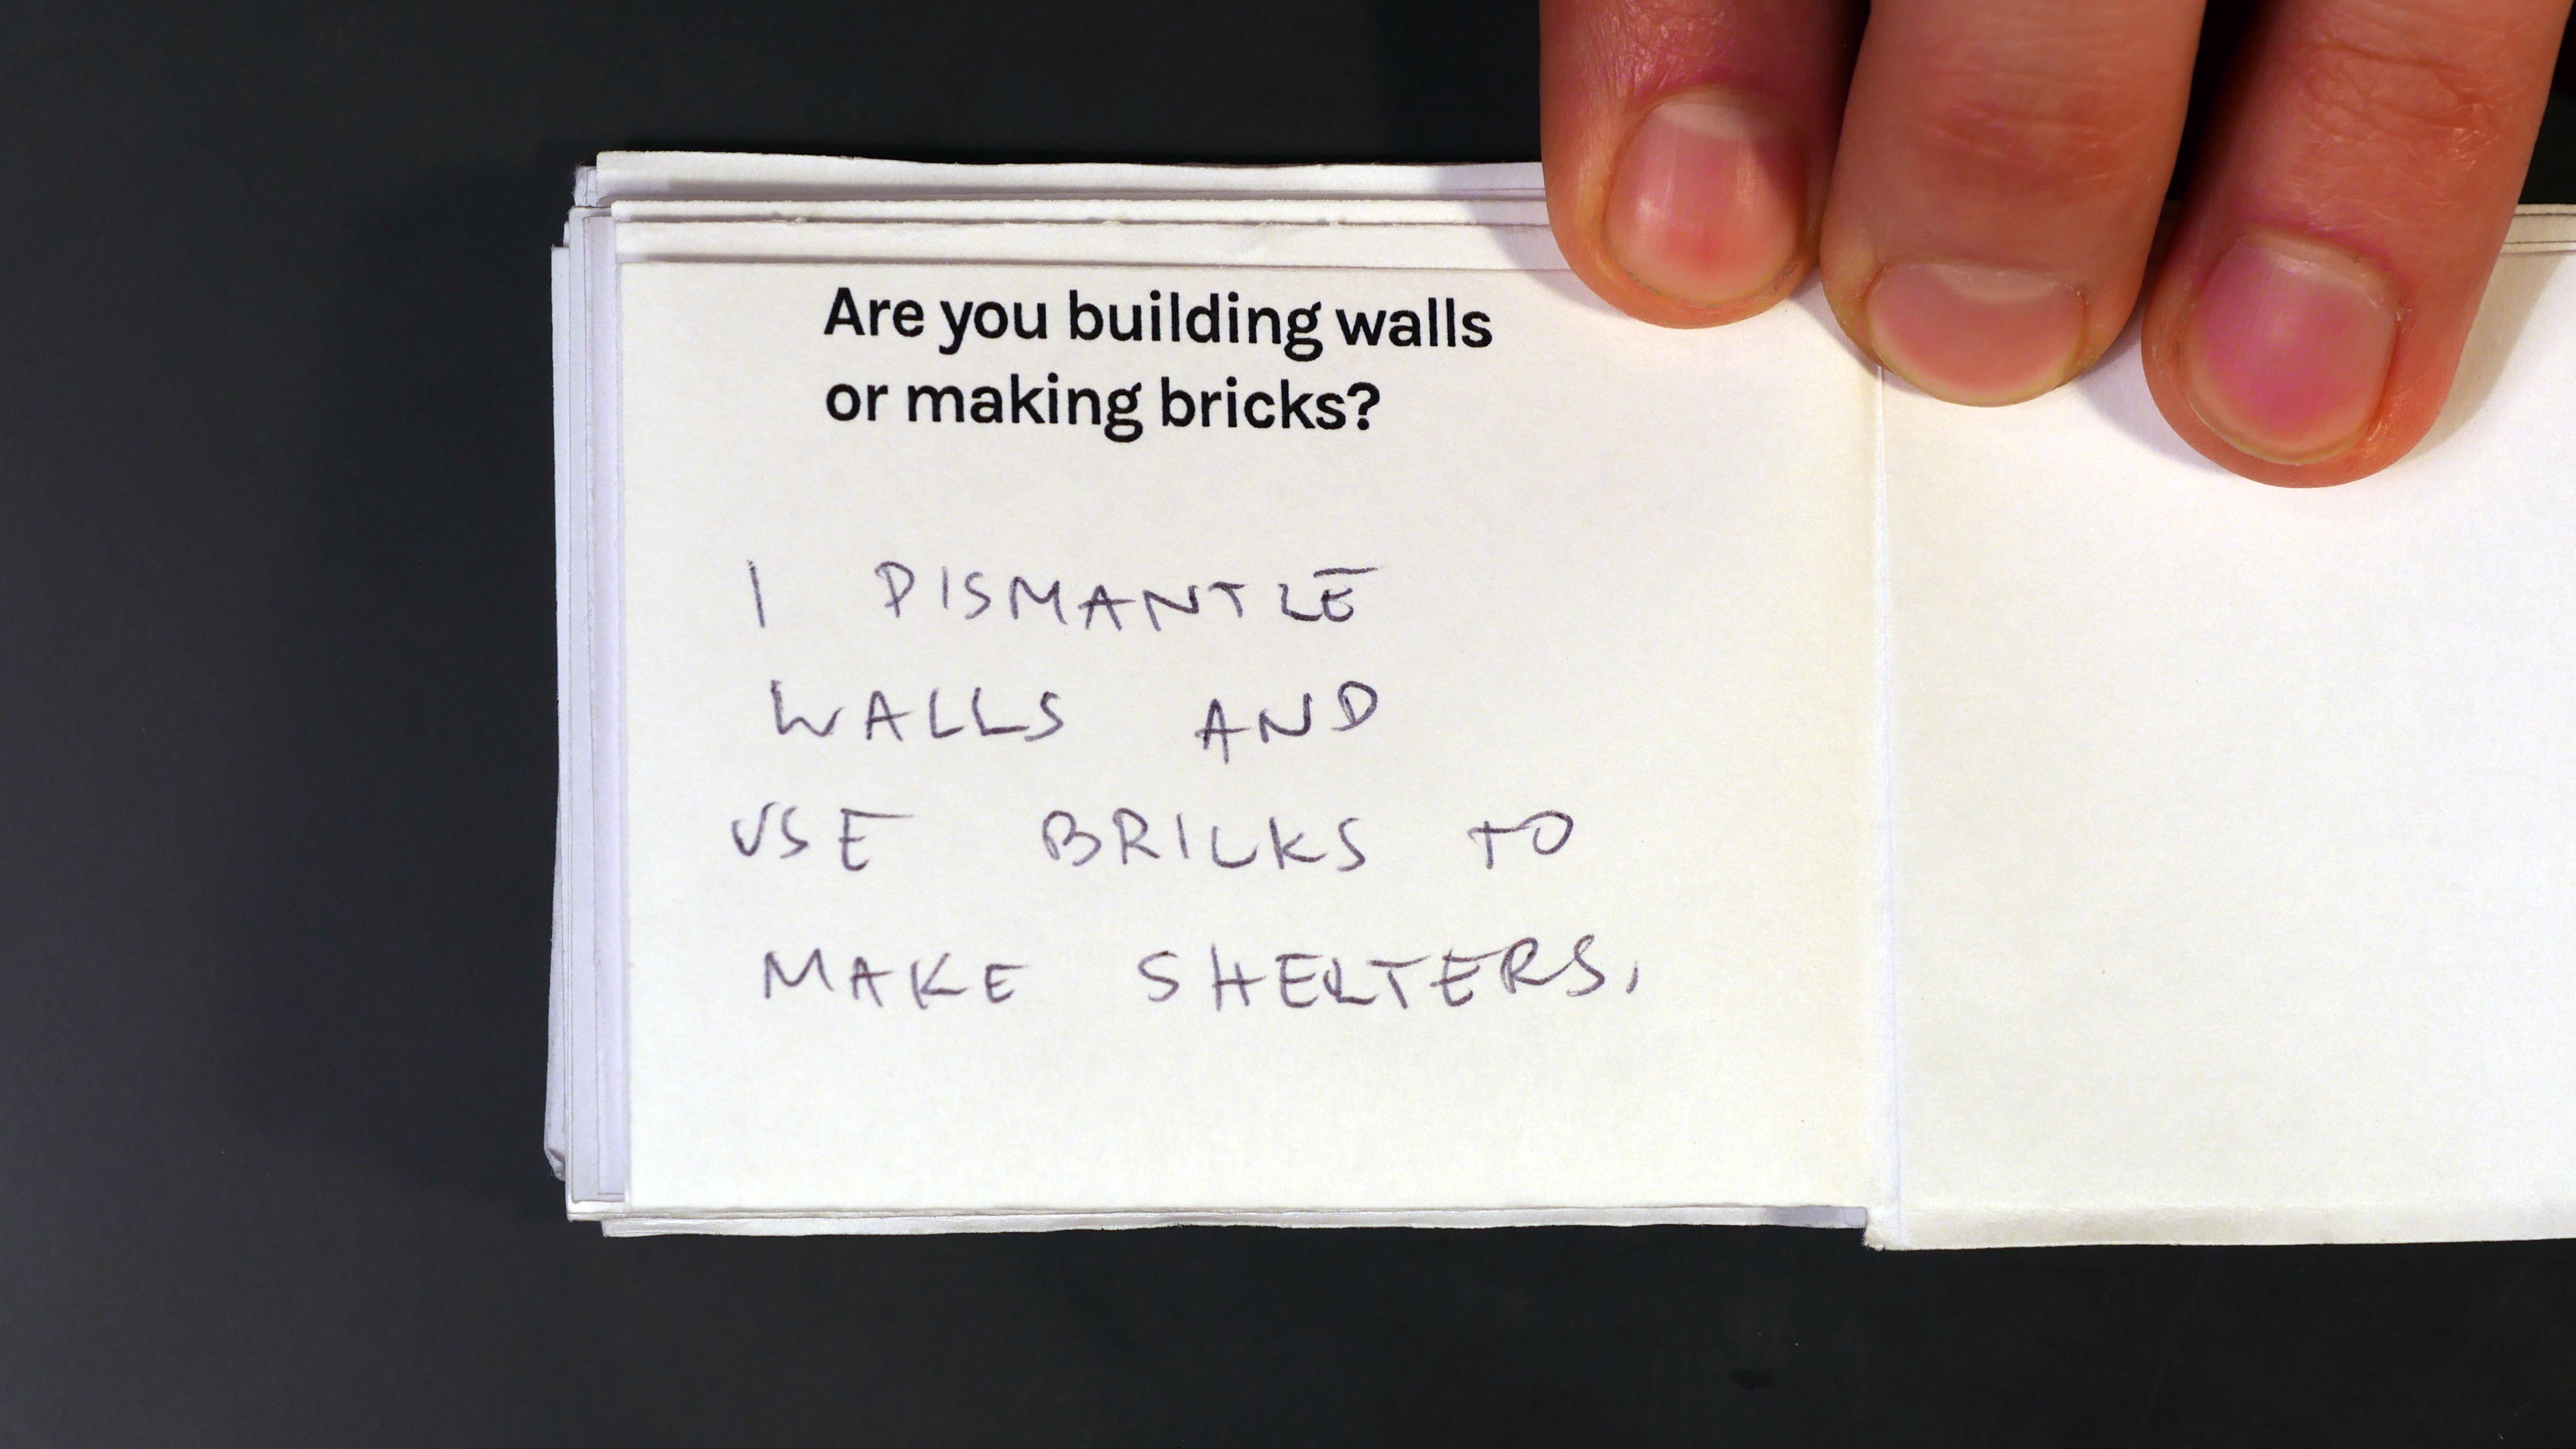 Are you building walls
or making bricks?
I DISMANTLE
WALLS AND
USE BRICKS TO
MAKE SHELTERS.